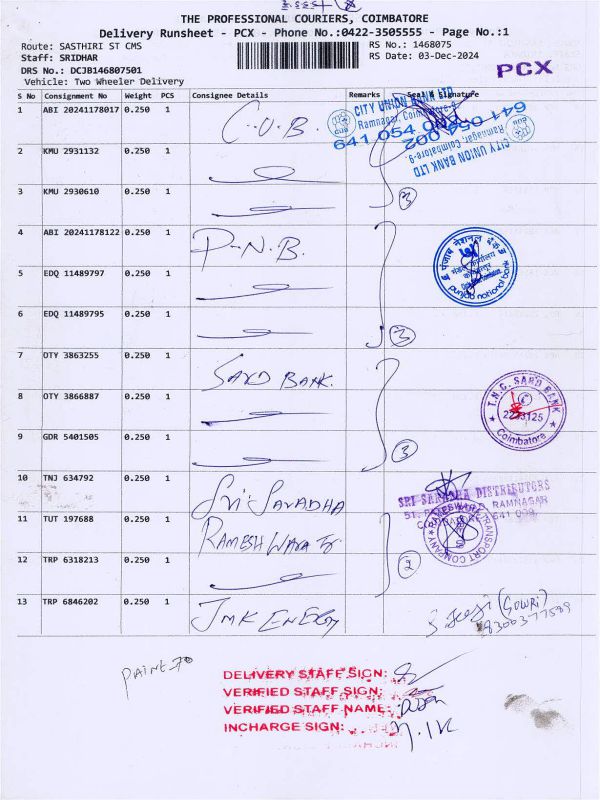 THE PROFESSIONAL COURIERS, COIMBATORE
Delivery Runsheet - PCX - Phone No.:0422-3505555 - Page No.:1
Route: SASTHIRI ST CMS RS No.: 1468075
Staff: SRIDHAR RS Date: 03-Dec-2024
DRS No.: DCJB146807501
Vehicle: Two Wheeler Delivery
PCX
S No Consignment No Weight PCS Consignee Details Remarks Seal & Signature
1 ABI 20241178017 0.250 1 C.U.B.
CITY UNION BANK LTD
Ramnagar, Coimbatore-9
641 054 002
641 054 002
Ramnagar, Coimbatore-9
CITY UNION BANK LTD
2 KMU 2931132 0.250 1
3 KMU 2930610 0.250 1 3
4 ABI 20241178122 0.250 1 P.N.B.
पंजाब नैशनल बैंक
punjab national bank
5 EDQ 11489797 0.250 1
6 EDQ 11489795 0.250 1 3
7 OTY 3863255 0.250 1 SARD BANK.
T.N.C. SARD BANK
Coimbatore
8 OTY 3866887 0.250 1
9 GDR 5401505 0.250 1 3
10 TNJ 634792 0.250 1 Sri. Saradha
SRI SARADHA DISTRIBUTORS
RAMNAGAR
COIMBATORE 641 009
11 TUT 197688 0.250 1 RAMESHWARA
TRANSPORT COMPANY
12 TRP 6318213 0.250 1 2
13 TRP 6846202 0.250 1 JMK ENERGY
(Gowri)
8300377599
DELIVERY STAFF SIGN:
VERIFIED STAFF SIGN:
VERIFIED STAFF NAME:
INCHARGE SIGN: